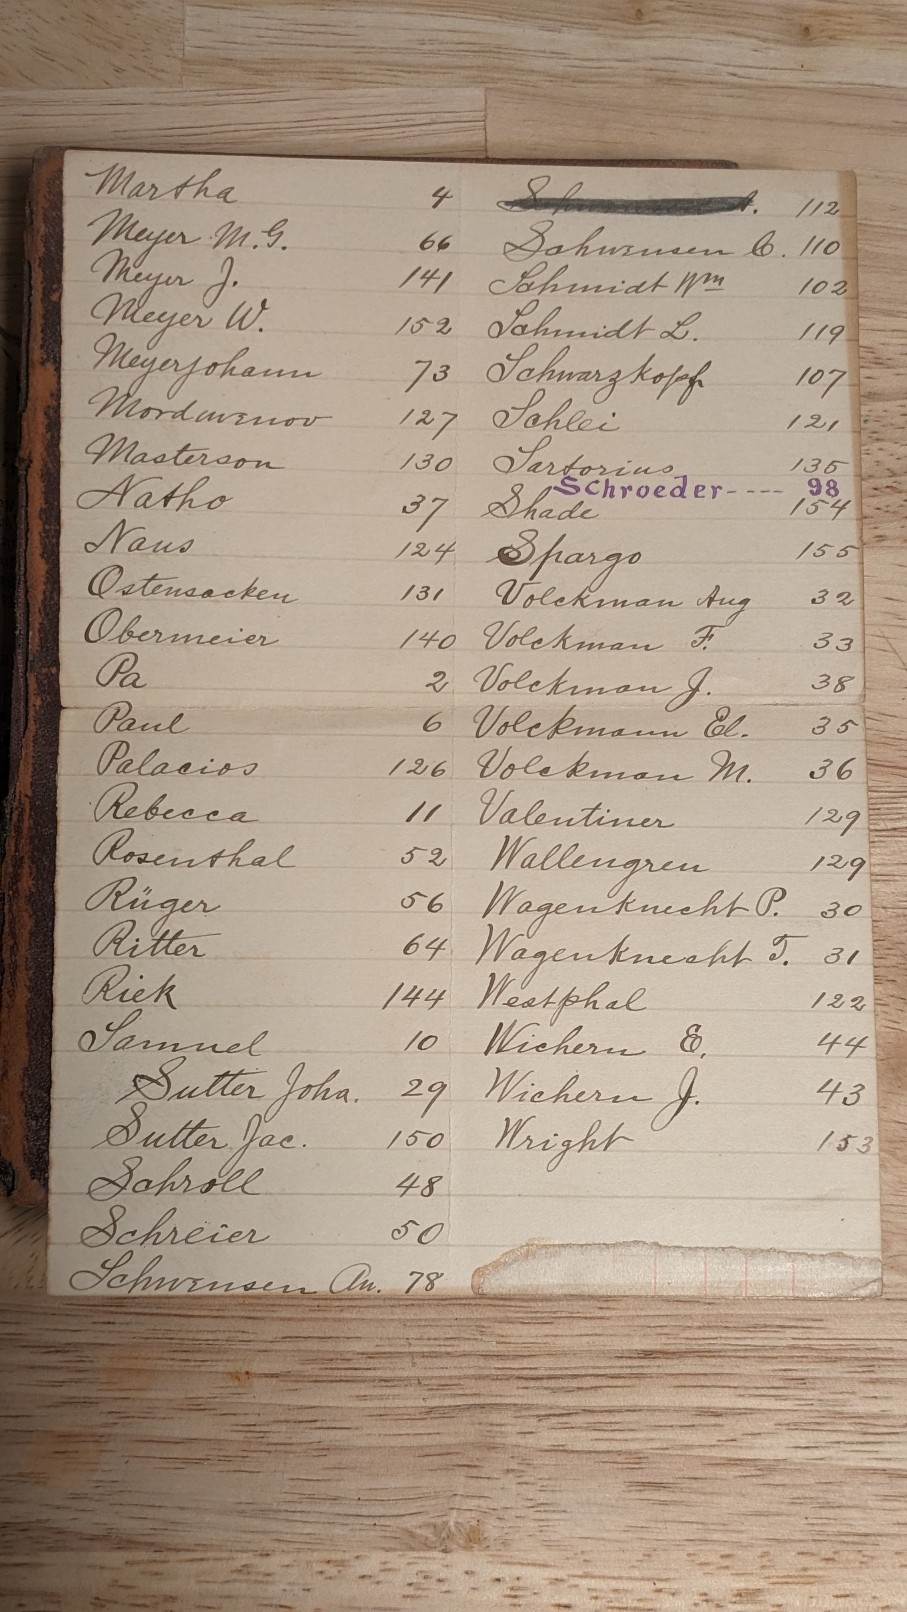 Martha 4
Meyer M.G. 66
Meyer J. 141
Meyer W. 152
Meyerjohann 73
Morduvinov 127
Masterson 130
Natho 37
Naus 124
Ostensacken 131
Obermeier 140
Pa 2
Paul 6
Palacios 126
Rebecca 11
Rosenthal 52
Rüger 56
Ritter 64
Riek 144
Samuel 10
Sutter Joha. 29
Sutter Jac. 150
Schroll 48
Schreier 50
Schwensen An. 78
112
Schwensen C. 110
Schmidt Wm 102
Schmidt L. 119
Schwarzkopf 107
Schlei 121
Sartorius 135
Schroeder---- 98
Shade 154
Spargo 155
Volckman Aug 32
Volckman F. 33
Volckman J. 38
Volckmann El. 35
Volckman M. 36
Valentiner 129
Wallengren 129
Wagenknecht P. 30
Wagenknecht T. 31
Westphal 122
Wichern E. 44
Wichern J. 43
Wright 153